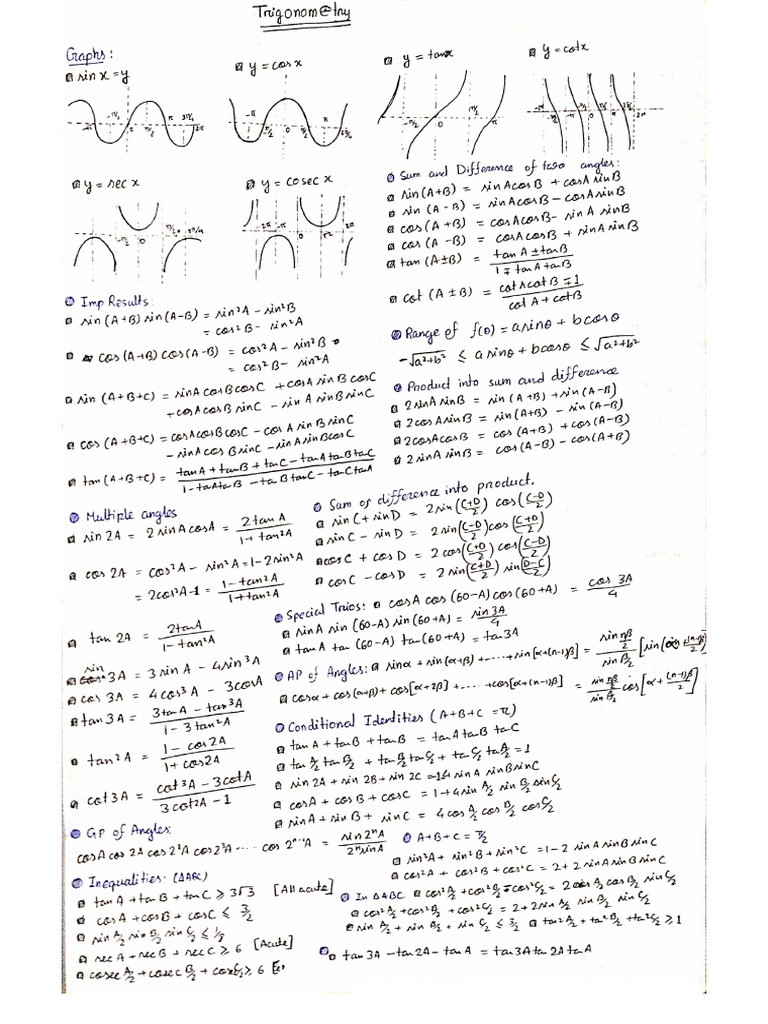 Trigonometry
Graphs:
sin x = y
y = cos x
y = tanx
y = cotx
y = sec x
y = cosec x
Sum and Difference of two angles:
sin(A+B) = sinAcosB + cosAsinB
sin(A-B) = sinAcosB - cosAsinB
cos(A+B) = cosAcosB - sinA sinB
cos(A-B) = cosAcosB + sinAsinB
tan(A±B) = (tanA ± tanB)/(1∓tanAtanB)
cot(A±B) = (cotAcotB∓1)/(cotA+cotB)
Imp Results:
sin(A+B)sin(A-B) = sin²A - sin²B
= cos²B - sin²A
cos(A+B)cos(A-B) = cos²A - sin²B
= cos²B - sin²A
sin(A+B+C) = sinAcosBcosC + cosAsinBcosC
+cosAcosBsinC - sinAsinBsinC
cos(A+B+C) = cosAcosBcosC - cosAsinBsinC
- sinAcosBsinC - sinAsinBcosC
tan(A+B+C) = (tanA+tanB+tanC-tanAtanBtanC)/(1-tanAtanB-tanBtanC-tanCtanA)
Range of f(θ)=asinθ+bcosθ
-√(a²+b²) ≤ asinθ+bcosθ ≤ √(a²+b²)
Product into sum and difference
2sinAsinB = sin(A+B)+sin(A-B)
2cosAsinB = sin(A+B) - sin(A-B)
2cosAcosB = cos(A+B)+cos(A-B)
2sinAsinB = cos(A-B) - cos(A+B)
Multiple angles
sin2A = 2sinAcosA = 2tanA/(1+tan²A)
cos2A = cos²A - sin²A = 1-2sin²A
= 2cos²A-1 = (1-tan²A)/(1+tan²A)
tan2A = 2tanA/(1-tan²A)
sin 3A = 3sinA - 4sin³A
cos3A = 4cos³A - 3cosA
tan3A = (3tanA - tan³A)/(1-3tan²A)
tan²A = (1-cos2A)/(1+cos2A)
cot3A = (cot³A-3cotA)/(3cot²A-1)
Sum or difference into product.
sinC+sinD = 2sin((C+D)/2) cos((C-D)/2)
sinC - sinD = 2sin((C-D)/2)cos((C+D)/2)
cosC + cosD = 2cos((C+D)/2)cos((C-D)/2)
cosC - cosD = 2sin((C+D)/2)sin((D-C)/2)
Special Trios: cosA cos(60-A)cos(60+A) = cos3A/4
sinA sin(60-A)sin(60+A) = sin3A/4
tanA tan(60-A)tan(60+A) = tan3A
AP of Angles: sinα+sin(α+β)+.....+sin[α+(n-1)β] = (sin nβ/2)/(sin β/2) [sin(α+(n-1)β/2)]
cosα+cos(α+β)+cos[α+2β]+.....+cos[α+(n-1)β] = (sin nβ/2)/(sin β/2) cos[α+(n-1)β/2]
Conditional Identities (A+B+C=π)
tanA+tanB+tanB = tanAtanBtanC
tan A/2 tan B/2 + tan B/2 tan C/2 + tan C/2 tan A/2 = 1
sin2A+sin2B+sin2C = 4sinAsinBsinC
cosA+cosB+cosC = 1+4sin A/2 sin B/2 sin C/2
sinA+sinB+sinC = 4cos A/2 cos B/2 cos C/2
GP of Angles:
cosAcos2Acos2²Acos2³A.....cos2ⁿ⁻¹A = sin2ⁿA/2ⁿsinA
A+B+C=π/2
sin²A+sin²B+sin²C = 1-2sinAsinBsinC
cos²A+cos²B+cos²C = 2+2sinAsinBsinC
Inequalities: (ΔABC)
tanA+tanB+tanC ≥ 3√3 [All acute]
cosA+cosB+cosC ≤ 3/2
sin A/2 sin B/2 sin C/2 ≤ 1/8
secA+secB+secC ≥ 6 [Acute]
cosec A/2+cosec B/2+cosec C/2 ≥ 6
In ΔABC cos² A/2+cos² B/2-cos² C/2 = 2cos A/2 cos B/2 sin C/2
cos² A/2+cos² B/2+cos² C/2 = 2+2sin A/2 sin B/2 sin C/2
sin A/2+sin B/2+sin C/2 ≤ 3/2 tan² A/2+tan² B/2+tan² C/2 ≥ 1
tan3A-tan2A-tanA = tan3Atan2AtanA